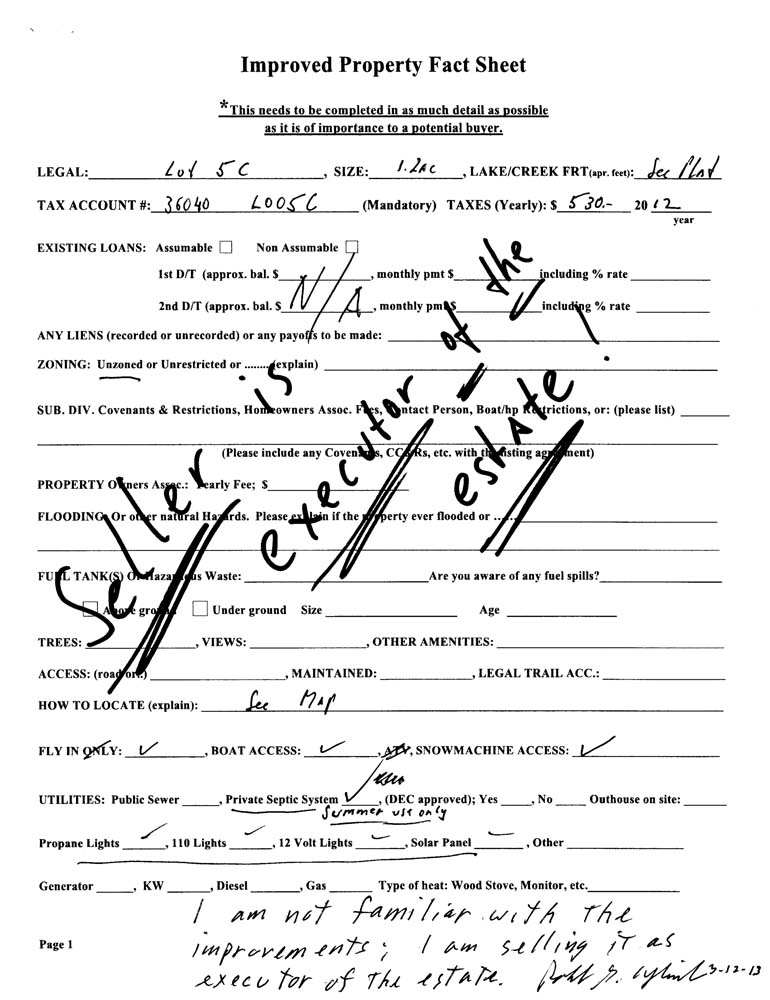 Improved Property Fact Sheet
*This needs to be completed in as much detail as possible
as it is of importance to a potential buyer.
LEGAL: Lot 5C, SIZE: 1.2AC, LAKE/CREEK FRT(apr. feet): See Plat
TAX ACCOUNT #: 36040 L005C (Mandatory) TAXES (Yearly): $ 530.- 2012
year
EXISTING LOANS: Assumable Non Assumable
1st D/T (approx. bal. $, monthly pmt $ including % rate
2nd D/T (approx. bal. $ N/A, monthly pmt $ including % rate
ANY LIENS (recorded or unrecorded) or any payoffs to be made:
ZONING: Unzoned or Unrestricted or ........(explain)
SUB. DIV. Covenants & Restrictions, Homeowners Assoc. Fees, Contact Person, Boat/hp Restrictions, or: (please list)
(Please include any Covenants, CC&Rs, etc. with the listing agreement)
PROPERTY Owners Assoc.: Yearly Fee; $
FLOODING Or other natural Hazards. Please explain if the property ever flooded or ......
Seller is executor of the estate!
FUEL TANK(S) Or Hazardous Waste: Are you aware of any fuel spills?
Above ground Under ground Size Age
TREES:, VIEWS:, OTHER AMENITIES:
ACCESS: (road or.), MAINTAINED:, LEGAL TRAIL ACC.:
HOW TO LOCATE (explain): See Map
FLY IN ONLY: ✓, BOAT ACCESS: ✓, ATV, SNOWMACHINE ACCESS: ✓
UTILITIES: Public Sewer, Private Septic System ✓, (DEC approved); Yes, No Outhouse on site:
Summer use only
Propane Lights ✓, 110 Lights ✓, 12 Volt Lights ✓, Solar Panel ✓, Other
Generator, KW, Diesel, Gas Type of heat: Wood Stove, Monitor, etc.
I am not familiar with the
Page 1 improvements; I am selling it as
executor of the estate. 3-12-13